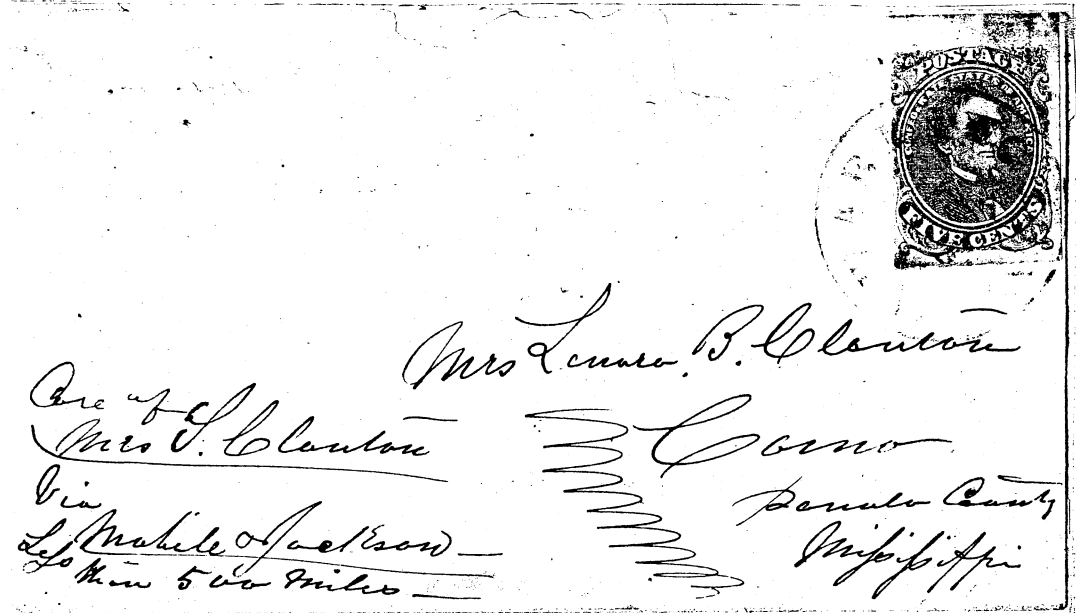 POSTAGE
CONFEDERATE STATES OF AMERICA
FIVE CENTS
Mrs Lenora B. Clanton
Como
Panola County
Mississippi
Care of
Mrs S. Clanton
Via
Mobile & Jackson —
Less than 500 miles —